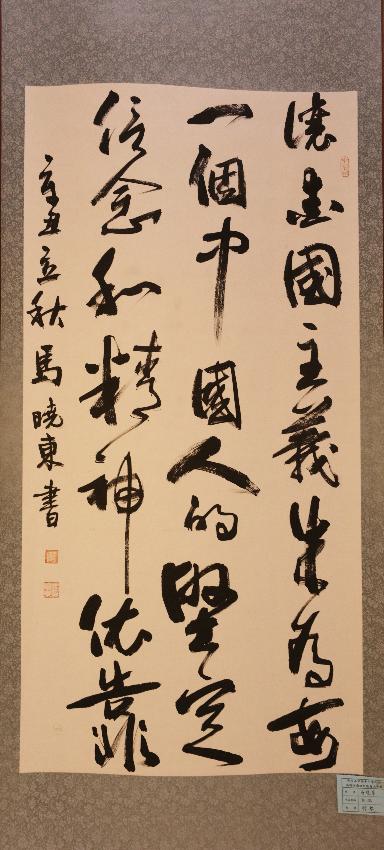 讓愛國主義成為每
一個中國人的堅定
信念和精神依靠
辛丑立秋馬曉東書